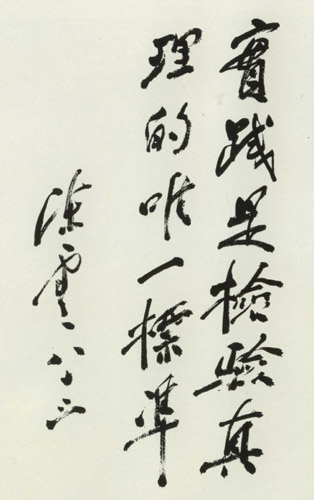 實踐是檢驗真
理的唯一標準
陳雲八十二